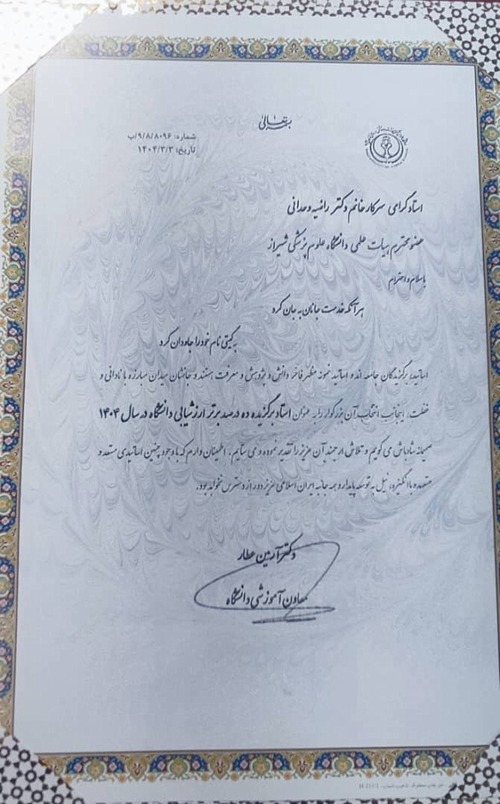 بسمه تعالی
شماره: ۹/۸/۸۰۹۶/ب
تاریخ: ۱۴۰۴/۳/۳
استاد گرامی سرکار خانم دکتر راضیه وحدانی
عضو محترم هیات علمی دانشگاه علوم پزشکی شیراز
با سلام و احترام
هر آنکه خدمت جانان به جان کرد
به گیتی نام خود را جاودان کرد
اساتید، برگزیدگان جامعه اند و اساتید نمونه مظهر فاخر دانش و پژوهش و معرفت هستند و جانشان میدان مبارزه با نادانی و
غفلت. اینجانب انتخاب آن بزرگوار را به عنوان استاد برگزیده ده درصد برتر ارزشیابی دانشگاه در سال ۱۴۰۴
صمیمانه شادباش می گویم و تلاش ارجمند آن عزیز را تقدیر نموده و می ستایم. اطمینان دارم که با وجود چنین اساتیدی متعهد و
متعهد و با انگیزه، نیل به توسعه پایدار و همه جانبه ایران اسلامی عزیز دور از دسترس نخواهد بود.
دکتر آرمین عطار
معاون آموزشی دانشگاه